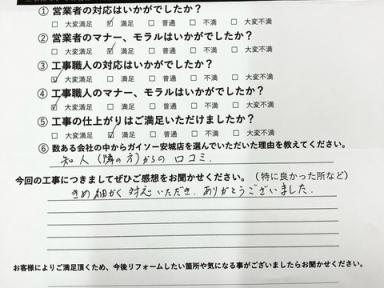 ① 営業者の対応はいかがでしたか？
□ 大変満足 ☑ 満足 □ 普通 □ 不満 □ 大変不満
② 営業者のマナー、モラルはいかがでしたか？
□ 大変満足 ☑ 満足 □ 普通 □ 不満 □ 大変不満
③ 工事職人の対応はいかがでしたか？
☑ 大変満足 □ 満足 □ 普通 □ 不満 □ 大変不満
④ 工事職人のマナー、モラルはいかがでしたか？
☑ 大変満足 □ 満足 □ 普通 □ 不満 □ 大変不満
⑤ 工事の仕上がりはご満足いただけましたか？
□ 大変満足 ☑ 満足 □ 普通 □ 不満 □ 大変不満
⑥ 数ある会社の中からガイソー安城店を選んでいただいた理由を教えてください。
知人（隣の方）からの口コミ．
今回の工事につきましてぜひご感想をお聞かせください。（特に良かった所など）
きめ細かく対応いただき．ありがとうございました．
お客様によりご満足頂くため、今後リフォームしたい箇所や気になる事がございましたらお聞かせください。